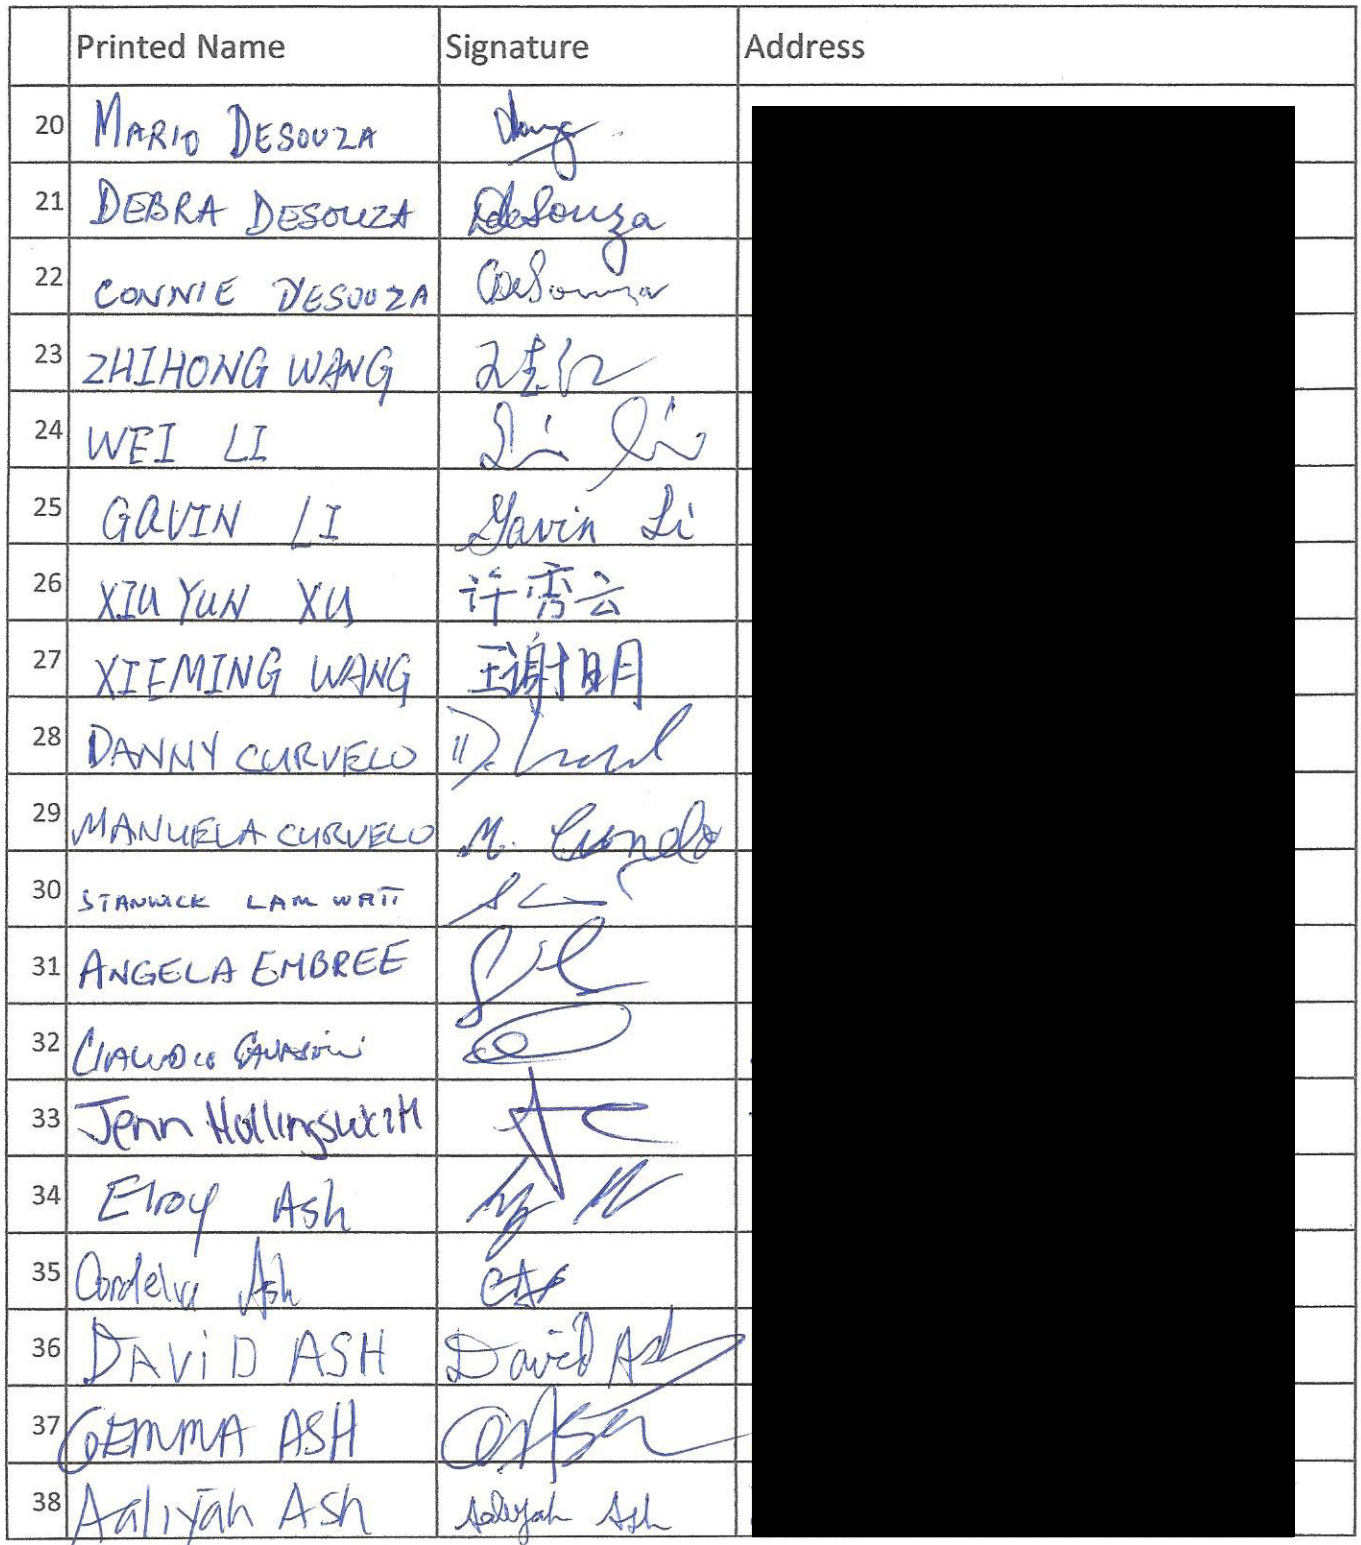 Printed Name Signature Address
20 MARIO DESOUZA
21 DEBRA DESOUZA DdeSouza
22 CONNIE DESOUZA CDeSouza
23 ZHIHONG WANG
24 WEI LI
25 GAVIN LI Gavin Li
26 XIU YUN XU 许秀云
27 XIEMING WANG 王谢明
28 DANNY CURVELO D.
29 MANUELA CURVELO M. Curvelo
30 STANWICK LAM WATT
31 ANGELA EMBREE
32 CLAUDIO
33 Jenn Hollingsworth
34 Elroy Ash
35 Cordelia Ash CAs
36 DAViD ASH David Ash
37 GEMMA ASH GAsh
38 Aaliyah Ash Aaliyah Ash